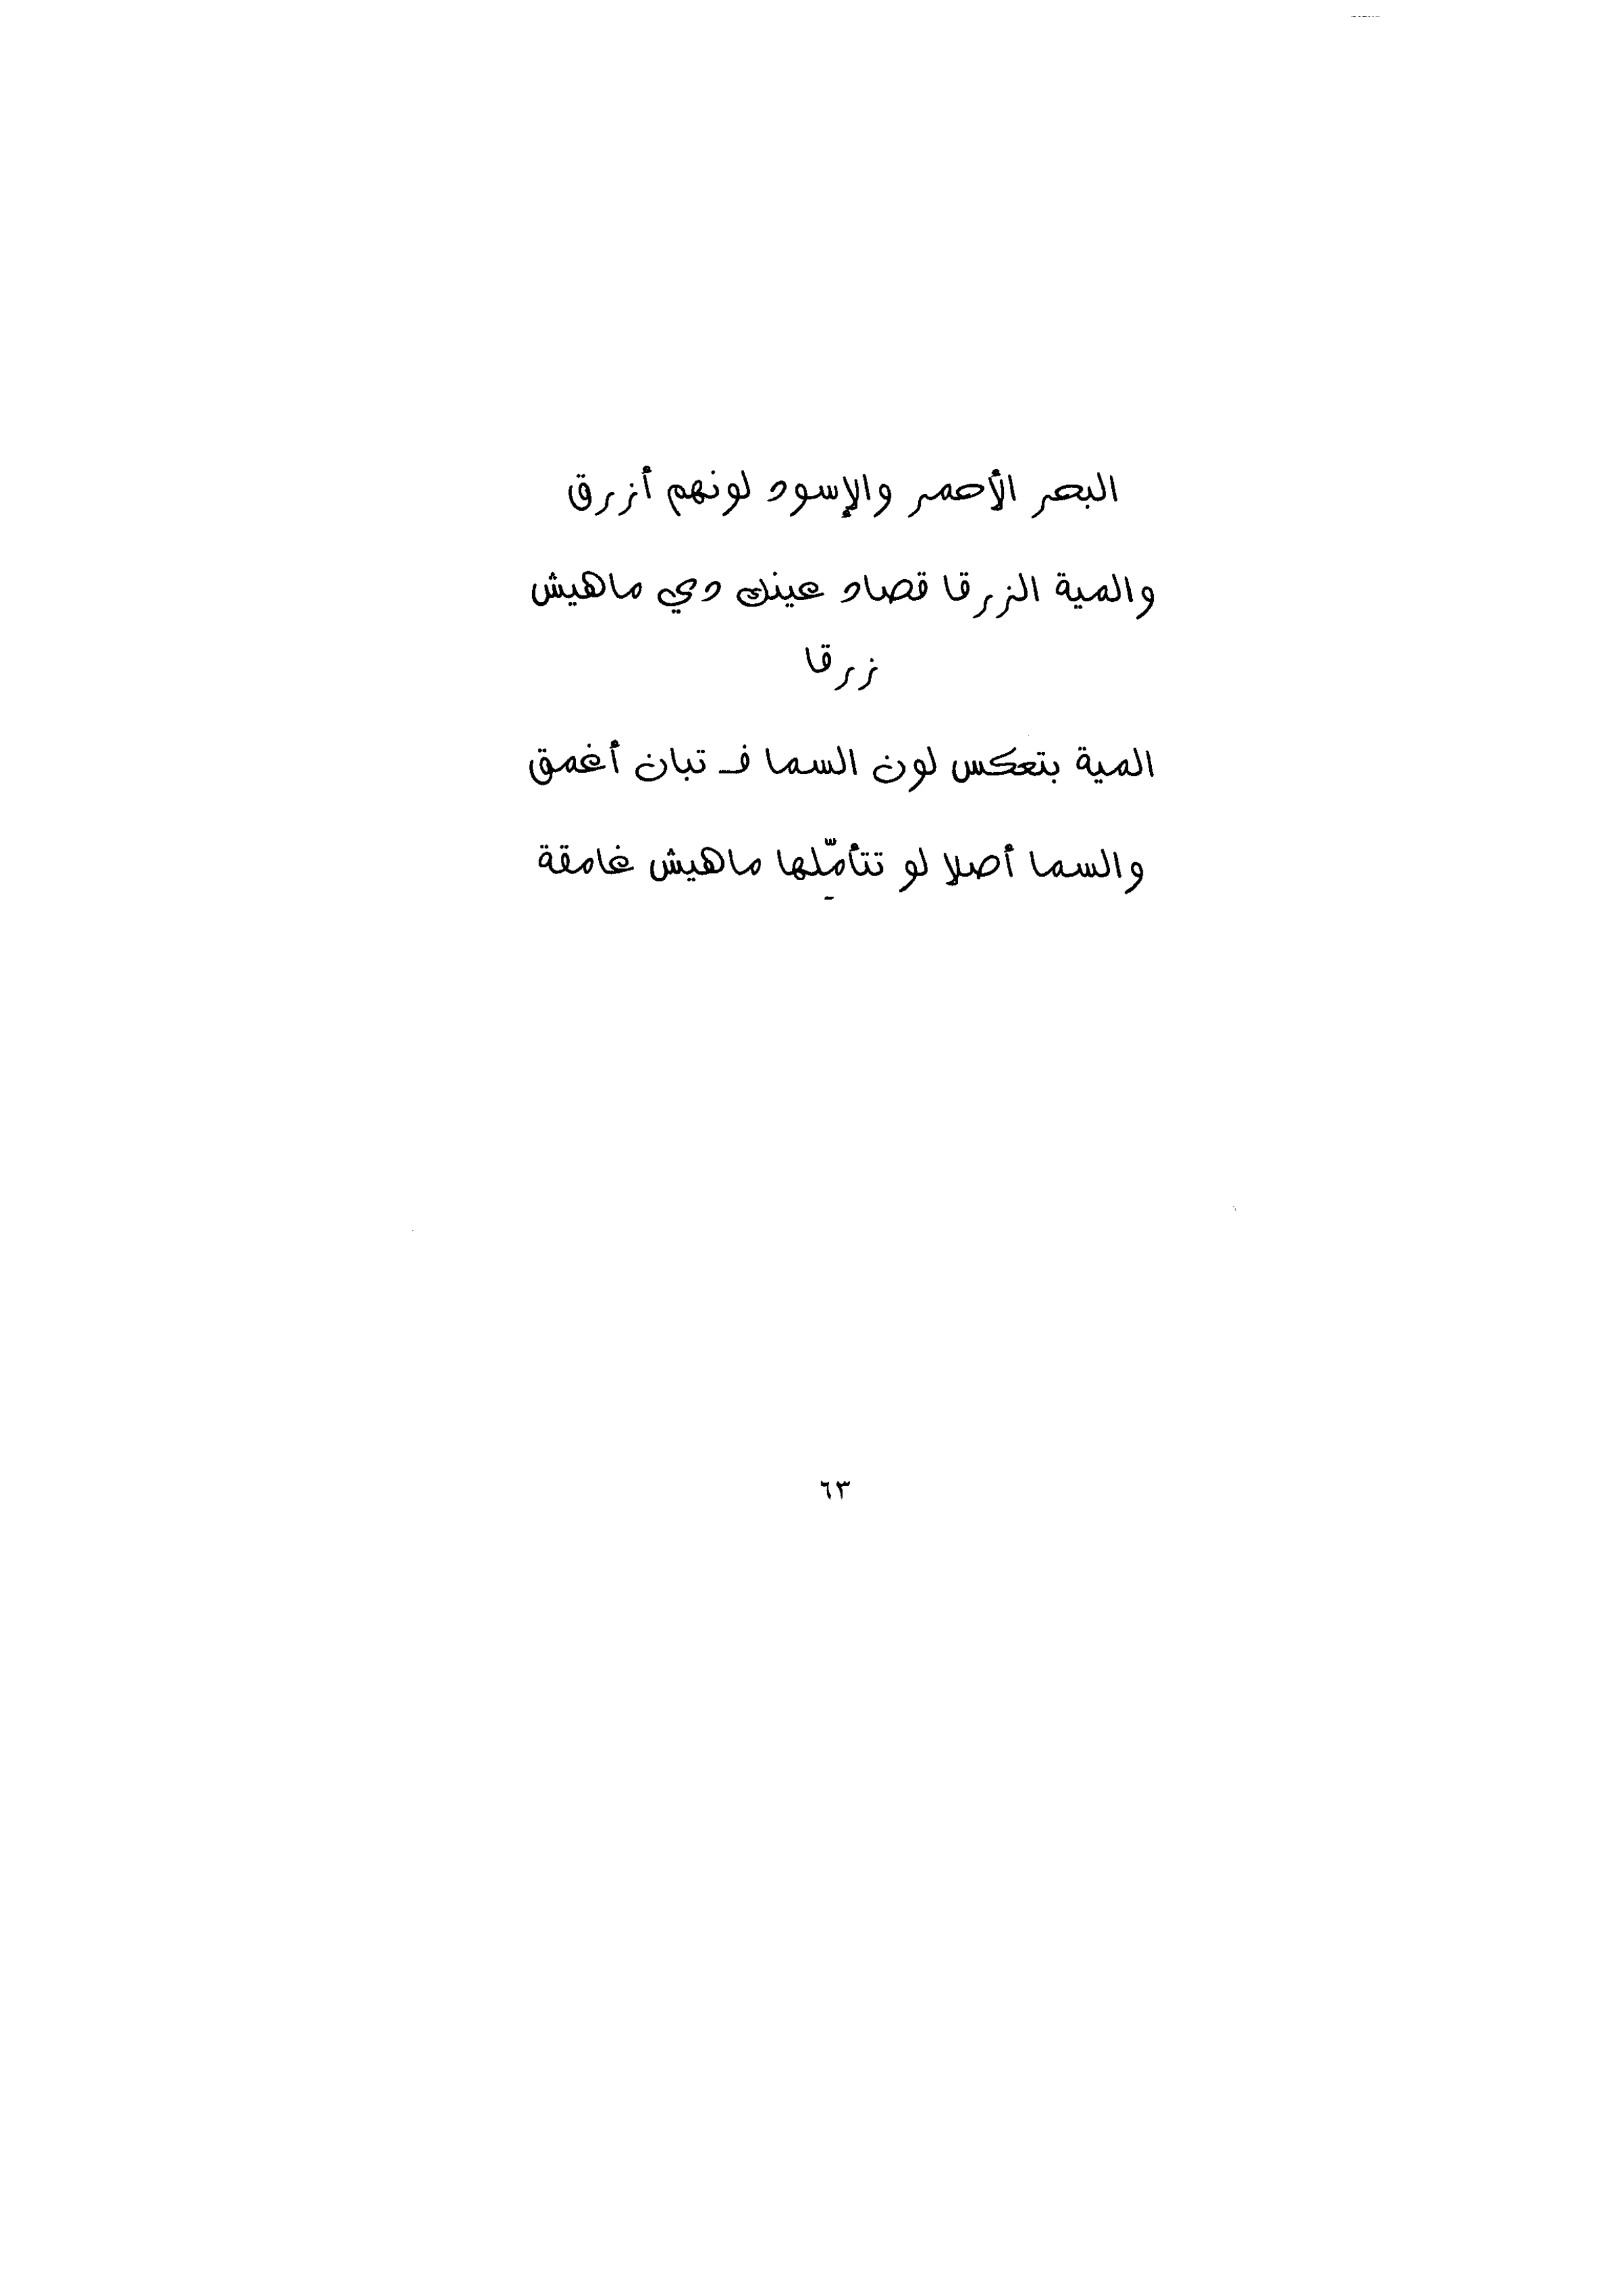 البحر الأحمر والإسود لونهم أزرق
والمية الزرقا قصاد عينك دي ماهيش
زرقا
المية بتعكس لون السما فـ تبان أغمق
والسما أصلا لو تتأمّلها ماهيش غامقة
٦٣